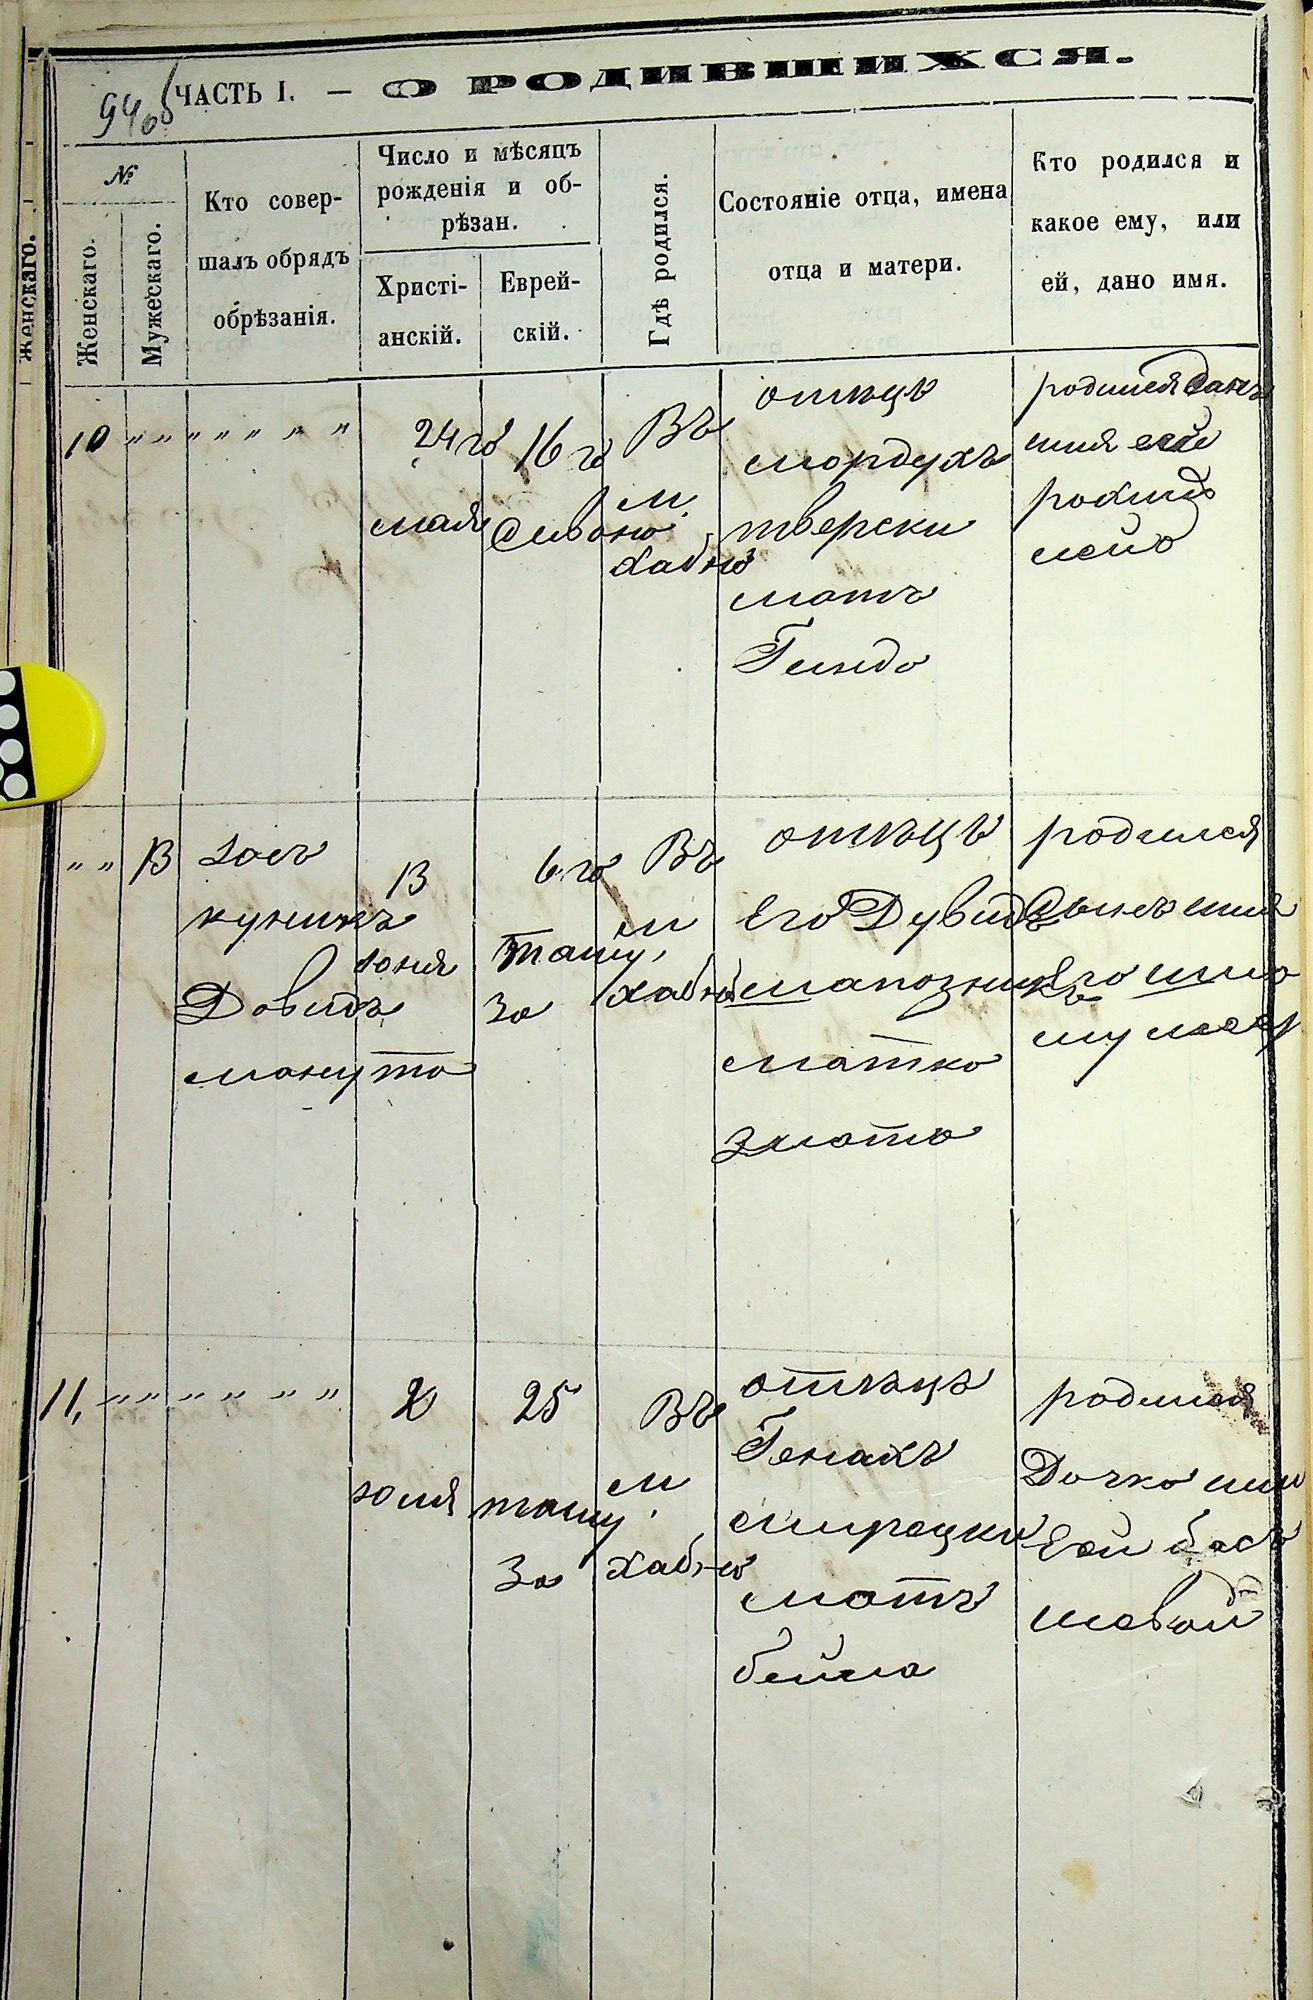 94 об
ЧАСТЬ I. — О РОДИВШИХСЯ.
Женскаго.
№
Женскаго.
Мужескаго.
Кто совер-
шалъ обрядъ
обрѣзанія.
Число и мѣсяцъ
рожденія и об-
рѣзан.
Христі-
анскій.
Еврей-
скій.
Гдѣ родился.
Состояніе отца, имена
отца и матери.
Кто родился и
какое ему, или
ей, дано имя.
10 „ „ „ „ „ „ „
24го
мая
16го
Сивоно
Въ
м.
Хабно
отецъ
мордухъ
тверски
мать
Гиндо
родился
имя ей
„ „ 13
кушнхъ
Довидъ
13
юня
6го
таму
за
Въ
м
Хабно
отецъ
Его Дувидъ
сапожникъ
матко
злато
родился
Сынъ имя
Его
11, „ „ „ „ „ „
2
юля
25
таму
за
Въ
м.
Хабно
отецъ
Генахъ
мать
бейла
родился
Дочко имя
Еей бас
шевой